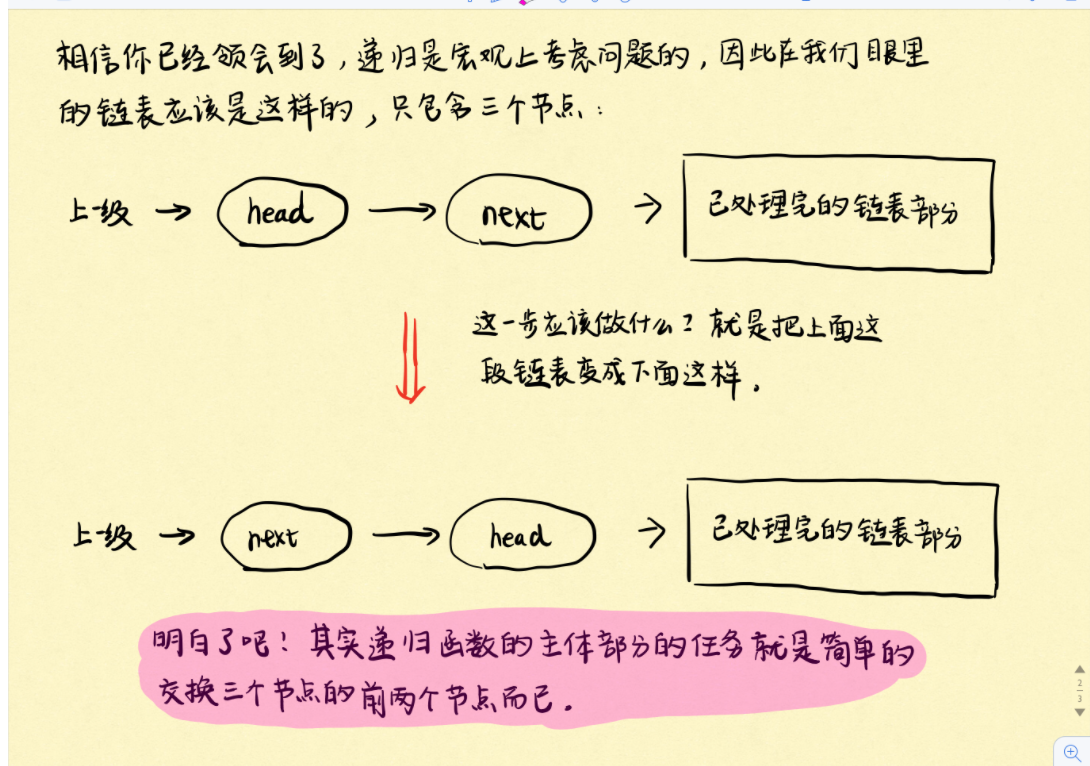 相信你已经领会到了，递归是宏观上考虑问题的，因此在我们眼里
的链表应该是这样的，只包含三个节点：
上一级 → head → next → 已处理完的链表部分
这一步应该做什么？就是把上面这
段链表变成下面这样。
上一级 → next → head → 已处理完的链表部分
明白了吧！其实递归函数的主体部分的任务就是简单的
交换三个节点的前两个节点而已。
2
3